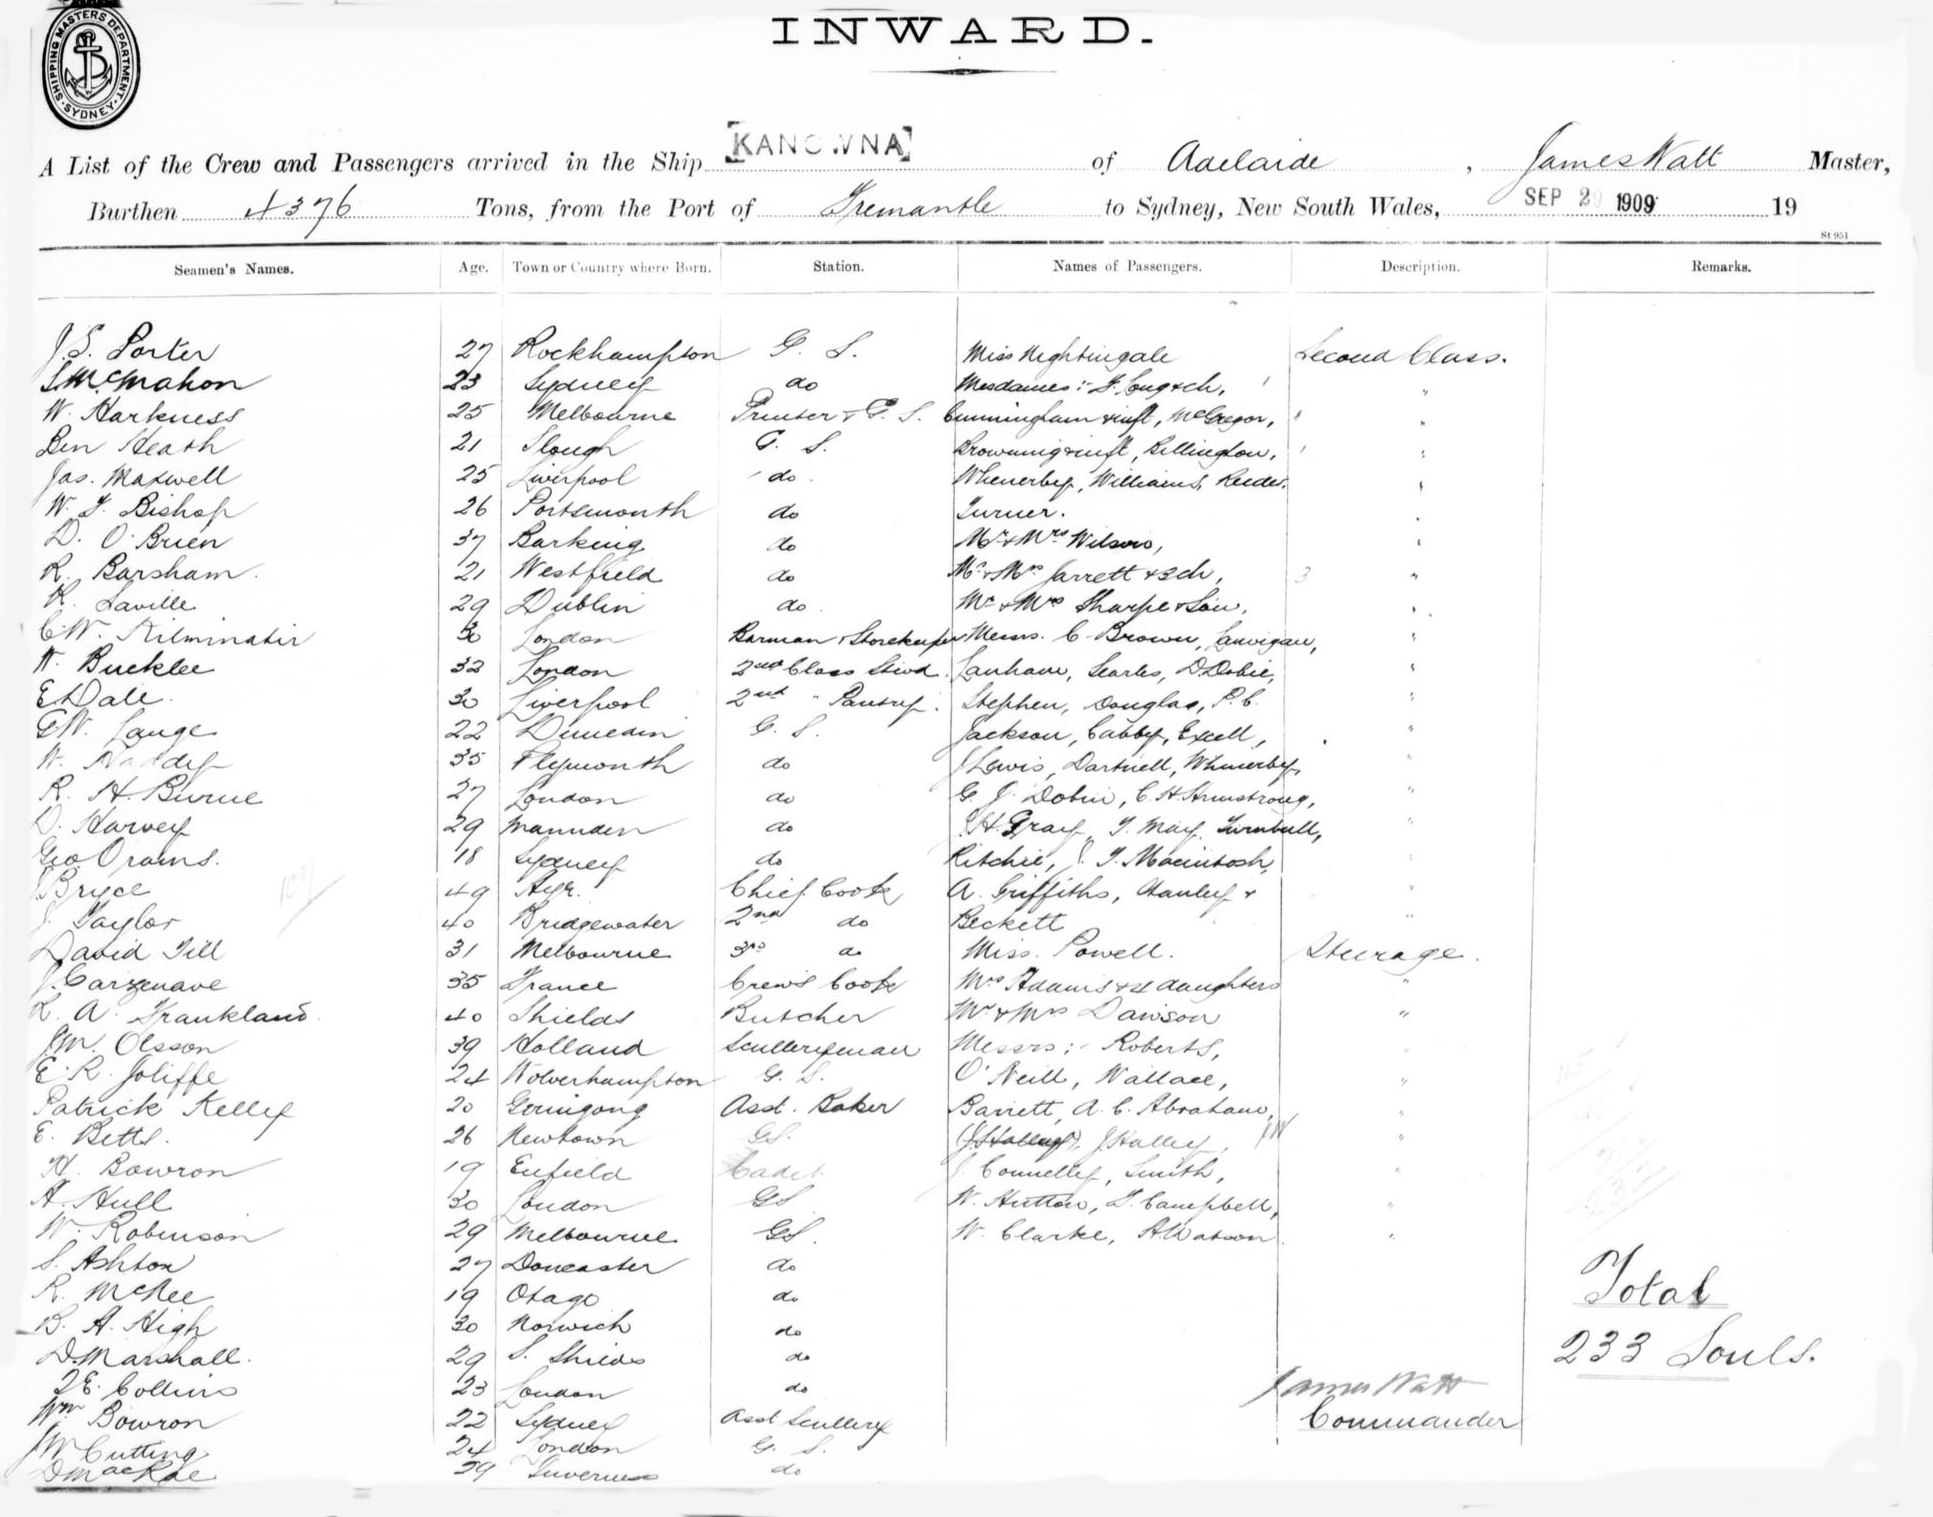 SHIPPING MASTERS DEPARTMENT
SYDNEY
INWARD.
A List of the Crew and Passengers arrived in the Ship [KANOWNA] of Adelaide, James Watt Master,
Burthen 4376 Tons, from the Port of Fremantle to Sydney, New South Wales, SEP 20 1909 19
St 951
Seamen's Names. Age. Town or Country where Born. Station. Names of Passengers. Description. Remarks.
J. S. Porter 27 Rockhampton G. S. Miss Nightingale Second Class.
S. McMahon 23 Sydney do Mesdames:- F. Long & ch, "
W. Harkness 25 Melbourne Printer & G. S. Cunningham & inft, McGregor, "
Ben Heath 21 Slough G. S. Browning & inft, Billington, "
Jas. Maxwell 25 Liverpool do Whenerby, Williams, Reeder, "
W. F. Bishop 26 Portsmouth do Turner. "
D. O'Brien 37 Barking do Mr & Mrs Wilson, "
R. Barsham. 21 Westfield do Mr & Mrs Jarrett & 3 ch, 3 "
R. Saville 29 Dublin do Mr & Mrs Sharpe & Son, "
C. W. Kilminster 30 London Barman & Storekeeper Messrs. C. Brown, Lanvigan, "
W. Bucklee 32 London 2nd Class Stwd. Lanham, Searles, D. Dobie, "
E Dale. 30 Liverpool 2nd " Pantry. Stephen, Douglas, P. C. "
G W. Lange 22 Dunedin G. S. Jackson, Cabby, Excell, "
W. Naddy 35 Plymouth do J Lewis, Dartnell, Whinerby, "
R. H. Burne 27 London do G. J. Dobin, C. H. Armstrong, "
D. Harvey 29 Mannden do J. H. Gray, T. May, Turnbull, "
Geo. Orams. 18 Sydney do Ritchie, J. T. Macintosh, "
J Bryce 49 Ayr. Chief Cook A. Griffiths, Stanley & "
J. Taylor 40 Bridgewater 2nd do Beckett "
David Till 31 Melbourne 3rd do Miss. Powell. Steerage.
J. Cazenave 35 France Crew's Cook Mrs Adams & 4 daughters "
L. A. Frankland 40 Shields Butcher Mr & Mrs Dawson "
J. M. Olsson 39 Holland Sculleryman Messrs:- Roberts, "
E. R. Joliffe 24 Wolverhampton G. S. O'Neill, Wallace, "
Patrick Kelley 20 Gerringong Asst. Baker Barrett, A. C. Abraham, "
E. Betts. 26 Newtown G.S. J Halley, JW "
H. Bowron 19 Enfield Cadet J. Connelly, Smith, "
A. Hull 30 London GS W. Hutton, T. Campbell, "
W. Robinson 29 Melbourne GS. W. Clarke, A Watson "
S. Ashton 27 Doncaster do
R. McKee 19 Otago do
B. A. High 30 Norwich do
D. Marshall. 29 S. Shields do
J. E. Collins 23 London do
Wm Bowron 22 Sydney Asst Scullery
J W Cutting 24 London G. S.
D Macrae 29 Inverness do
Total
233 Souls.
James Watt
Commander